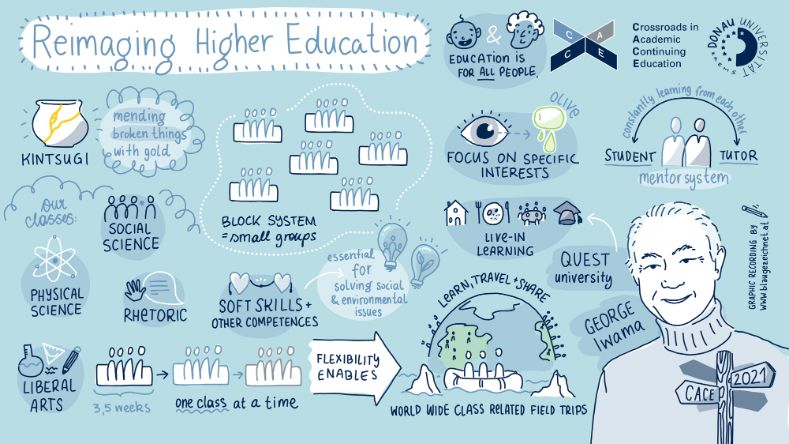 Reimaging Higher Education
&
EDUCATION IS
FOR ALL PEOPLE
C A
C E
Crossroads in
Academic
Continuing
Education
DONAU UNIVERSITÄT
KREMS
KINTSUGI
mending
broken things
with gold
BLOCK SYSTEM
= small groups
OLIVE
FOCUS ON SPECIFIC
INTERESTS
constantly learning from each other
STUDENT
TUTOR
mentor system
OUR
classes:
SOCIAL
SCIENCE
PHYSICAL
SCIENCE
RHETORIC
SOFT SKILLS +
OTHER COMPETENCES
essential
FOR
solving social
& environmental
issues
LIVE-IN
LEARNING
QUEST
university
GEORGE
Iwama
GRAPHIC RECORDING BY
www.blaugezeichnet.at
LIBERAL
ARTS
3,5 weeks
one class at a time
FLEXIBILITY
ENABLES
LEARN, TRAVEL + SHARE
WORLD WIDE CLASS RELATED FIELD TRIPS
CACE
2021